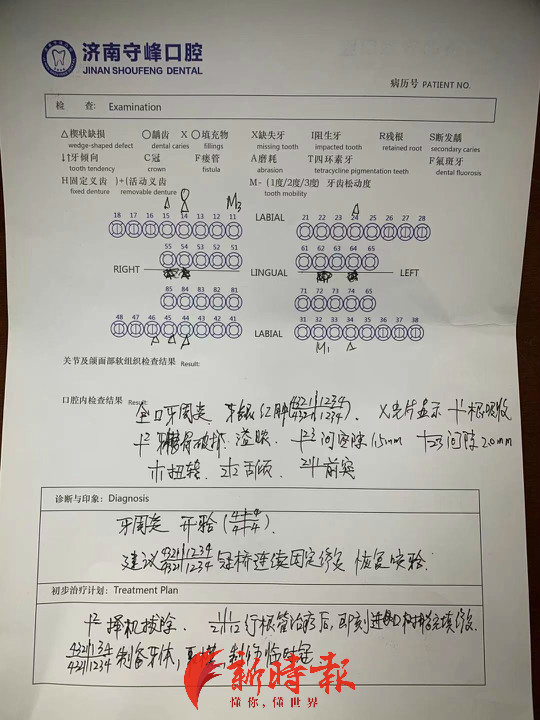 济南守峰口腔
JINAN SHOUFENG DENTAL
病历号 PATIENT NO.
检 查: Examination
△楔状缺损 ○龋齿 X ○填充物 X缺失牙 I阻生牙 R残根 S断发龋
wedge-shaped defect dental caries fillings missing tooth impacted tooth retained root secondary caries
I↑牙倾向 C冠 F瘘管 A磨耗 T四环素牙 F氟斑牙
tooth tendency crown fistula abrasion tetracycline pigmentation teeth dental fluorosis
H固定义齿 )+(活动义齿 M-(1度/2度/3度) 牙齿松动度
fixed denture removable denture tooth mobility
M3
18 17 16 15 14 13 12 11 LABIAL 21 22 23 24 25 26 27 28
55 54 53 52 51 61 62 63 64 65
RIGHT LINGUAL LEFT
85 84 83 82 81 71 72 73 74 65
48 47 46 45 44 43 42 41 LABIAL 31 32 33 34 35 36 37 38
M1
关节及颌面部软组织检查结果 Result:
口腔内检查结果 Result: 全口牙周炎 牙龈红肿 4321 1234 X光片显示
4321 1234
溢脓 间隙 1.5mm 间隙 2.0mm
扭转 舌倾 前突
诊断与印象: Diagnosis
牙周炎 开𬌗 4 4
4 4
建议 4321 1234 冠桥连续固定修复 恢复咬𬌗
4321 1234
初步治疗计划: Treatment Plan
择机拔除 21 12 行根管治疗后,即刻
4321 1234 制备牙体, 制作临时冠
新時報
懂你,懂世界